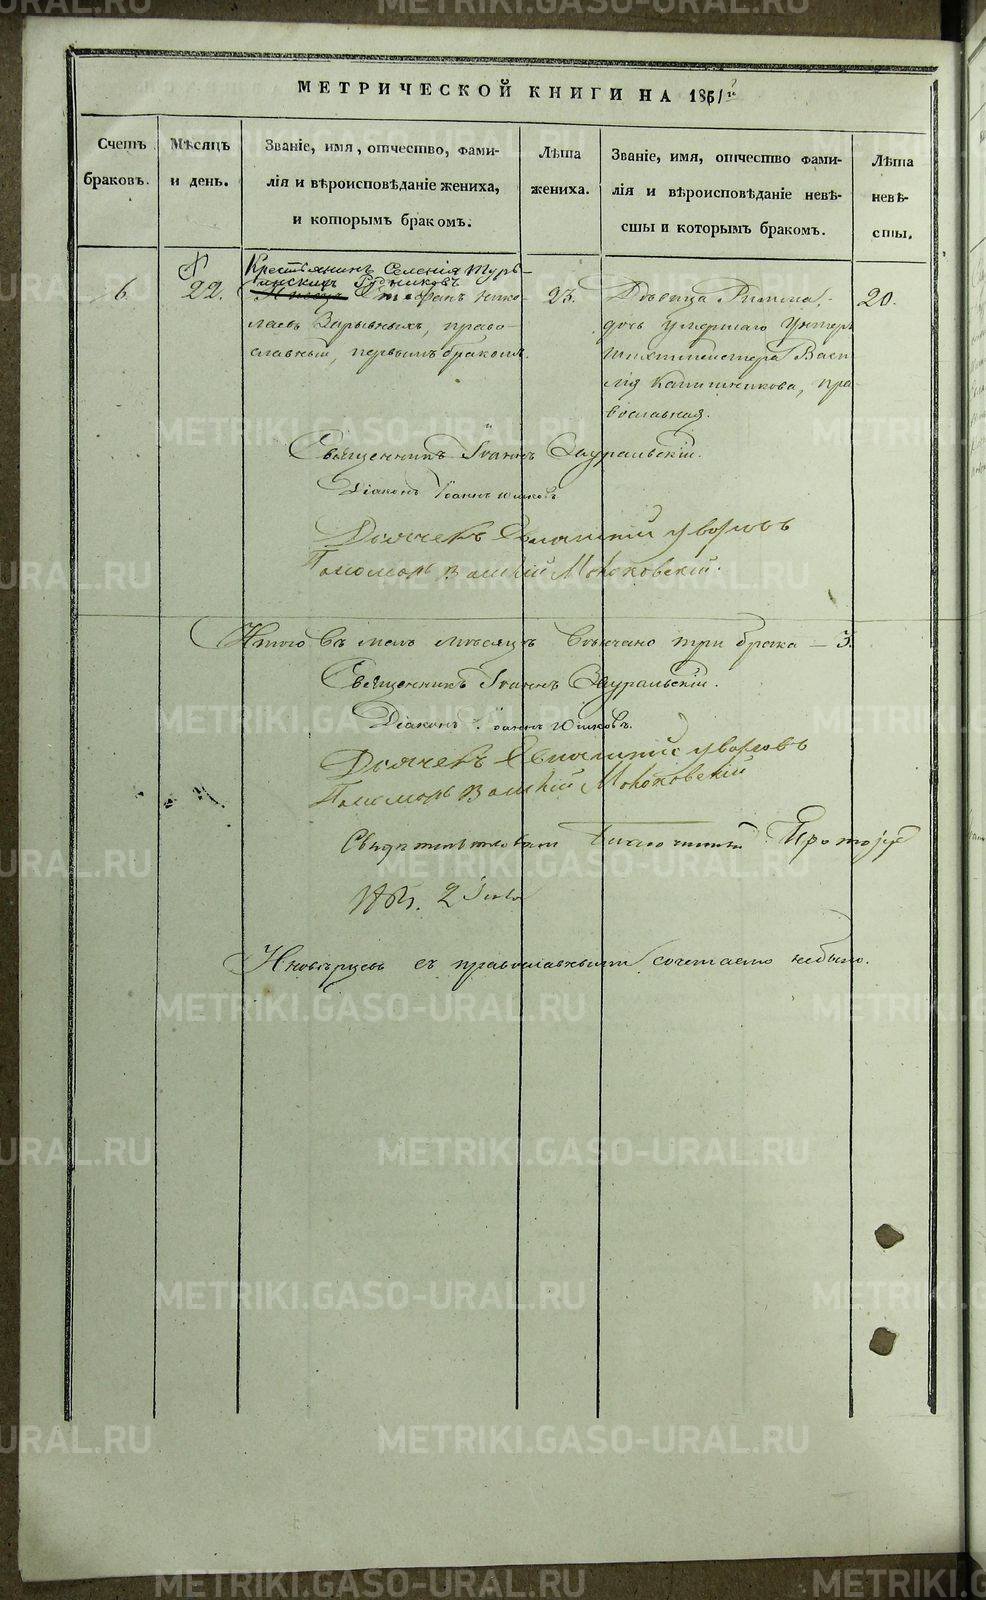 МЕТРИЧЕСКОЙ КНИГИ НА 1861
Счетъ браковъ.
Мѣсяцъ и день.
Званіе, имя, отчество, фами-
лія и вѣроисповѣданіе жениха,
и которымъ бракомъ.
Лѣта
жениха.
Званіе, имя, отчество фами-
лія и вѣроисповѣданіе невѣ-
сты и которымъ бракомъ.
Лѣта
невѣ-
сты.
Крестьянинъ Селенія Турь-
инскихъ Рудниковъ
6.
22.
Стефанъ Нико-
лаевъ Взрывныхъ, право-
славный, первымъ бракомъ.
23.
Дѣвица Римма,
дочь умершаго Унтеръ
шихтмейстера Васи
лія Калашникова, пра
вославная.
20.
Священникъ Іоаннъ Зауральскій.
Діаконъ Іоаннъ Юшковъ
Дьячекъ Евлампій Уваровъ
Пономарь Мококовскій.
Итого въ маѣ мѣсяцѣ вѣнчано три брака — 3.
Священникъ Іоаннъ Зауральскій.
Діаконъ Іоаннъ Юшковъ.
Дьячекъ Евлампій Уваровъ
Пономарь Мококовскій
Свидѣтельствовалъ Благочинный Протоіе
Иновѣрцевъ съ православными сочетаемо небыло.
METRIKI.GASO-URAL.RU